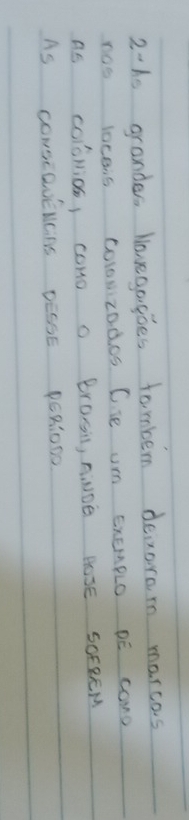 2-As grandes Navegações também deixaram marcas
nos locais colonizados Cite um EXEMPLO DE COMO
AS COLÔNIAS, COMO O Brasil, AINDA HOJE SOFREM
AS CONSEQUÊNCIAS DESSE PERÍODO